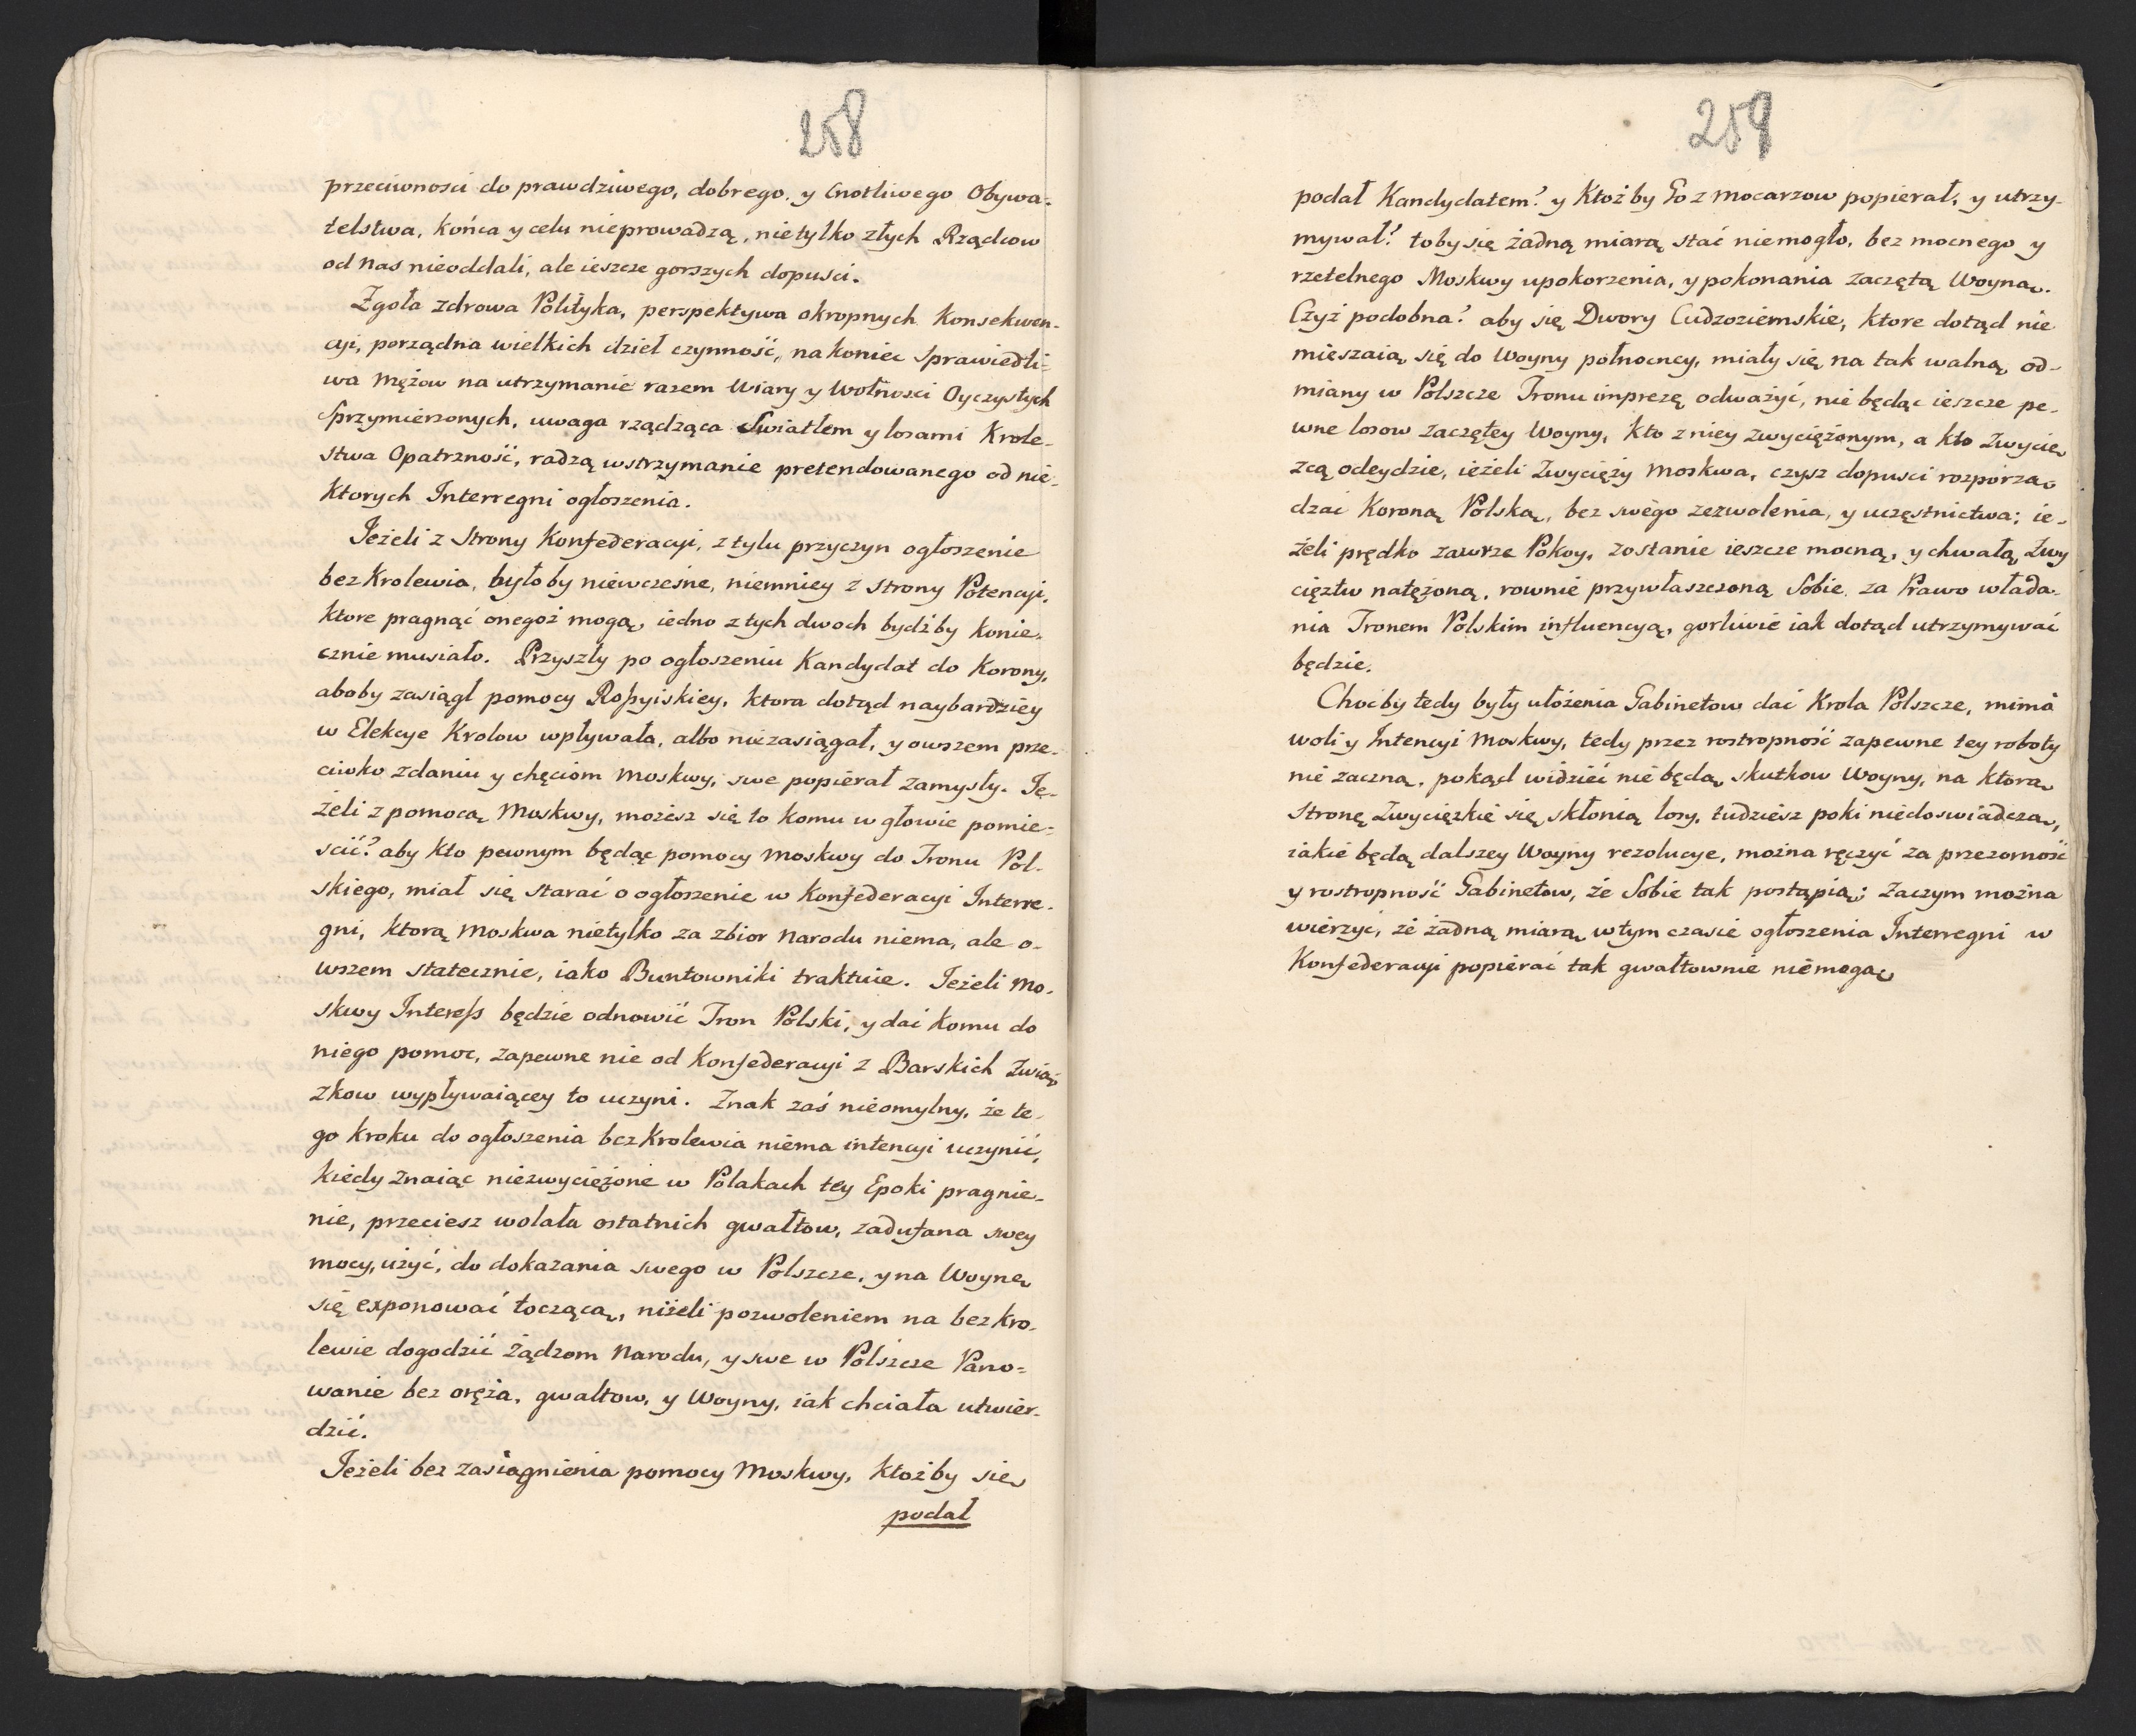 258
przeciwnosci do prawdziwego, dobrego, y Cnotliwego Obywa-
telstwa, końca y celu nieprowadzą, nietylko złych Rządcow
od nas nieoddali, ale ieszcze gorszych dopusci.
Zgoła zdrowa Polityka, perspektywa okropnych Konsekwen-
cyi, porządna wielkich dzieł czynność, na koniec Sprawiedli-
wa Mężow na utrzymanie razem Wiary y Wolnosci Oyczystych
Sprzymierzonych, uwaga rządząca Swiatłem y losami Krole-
stwa Opatrzność, radzą wstrzymanie pretendowanego od nie-
ktorych Interregni ogłoszenia.
Jeżeli z Strony Konfederacyi, z tylu przyczyn ogłoszenie
bezKrolewia, byłoby niewczesne, niemniey z Strony Potencyi,
ktore pragnąć onegoż mogą, iedno z tych dwoch bydźby konie-
cznie musiało. Przyszły po ogłoszeniu Kandydat do Korony,
aboby zasiągł pomocy Rossyiskiey, ktora dotąd naybardziey
w Elekcye Krolow wpływała, albo niezasiągał, y owszem prze-
ciwko zdaniu y chęciom Moskwy, swe popierał zamysły. Je-
żeli z pomocą Moskwy, możesz się to komu w głowie pomie-
scić? aby kto pewnym będąc pomocy Moskwy do Tronu Pol-
skiego, miał się starać o ogłoszenie w Konfederacyi Interre-
gni, ktorą Moskwa nietylko za zbior Narodu niema, ale o-
wszem statecznie, iako Buntowniki traktuie. Jeżeli Mo-
skwy Interess będzie odnowić Tron Polski, y dać komu do
niego pomoc, zapewne nie od Konfederacyi z Barskich Zwią-
zkow wypływaiącey to uczyni. Znak zaś nieomylny, że te-
go kroku do ogłoszenia bezKrolewia niema intencyi uczynić,
kiedy znaiąc niezwyciężone w Polakach tey Epoki pragnie-
nie, przeciesz wolała ostatnich gwałtow, zadufana swey
mocy, użyć, do dokazania swego w Polszcze, y na Woynę
się exponować toczącą, niżeli pozwoleniem na bezKro-
lewie dogodzić żądzom Narodu, y swe w Polszcze Pano-
wanie bez oręża, gwałtow, y Woyny, iak chciała utwier-
dzić.
Jeżeli bez zasiągnienia pomocy Moskwy, ktożby się
podał
259
podał Kandydatem? y Ktożby Go z mocarzow popierał, y utrzy-
mywał? toby się żadną miarą stać niemogło, bez mocnego y
rzetelnego Moskwy upokorzenia, y pokonania zaczętą Woyną.
Czyż podobna? aby się Dwory Cudzoziemskie, ktore dotąd nie
mieszaią się do Woyny połnocney, miały się na tak walną od-
miany w Polszcze Tronu imprezę odważyć, nie będąc ieszcze pe-
wne losow zaczętey Woyny, kto z niey zwyciężonym, a kto Zwycię-
zcą odeydzie, ieżeli Zwycięży Moskwa, czysz dopusci rozporzą-
dzać Koroną Polską, bez swego zezwolenia, y uczęstnictwa; ie-
żeli prędko zawrze Pokoy, zostanie ieszcze mocną, y chwałą Zwy
cięztw natężoną, rownie przywłaszczoną Sobie, za Prawo włada-
nia Tronem Polskim influencyą, gorliwie iak dotąd utrzymywać
będzie.
Choćby tedy były ułożenia Gabinetow dać Krola Polszcze, mimo
woli y Intencyi Moskwy, tedy przez rostropność zapewne tey roboty
nie zaczną, pokąd widzieć nie będą, skutkow Woyny, na ktorą
Stronę Zwycięzkie się skłonią losy, tudziesz poki niedoswiadczą,
iakie będą dalszey Woyny rezolucye, można ręczyć za przezorność
y rostropność Gabinetow, że Sobie tak postąpią; Zaczym można
wierzyć, że żadną miarą w tym czasie ogłoszenia Interregni w
Konfederacyi popierać tak gwałtownie niemogą